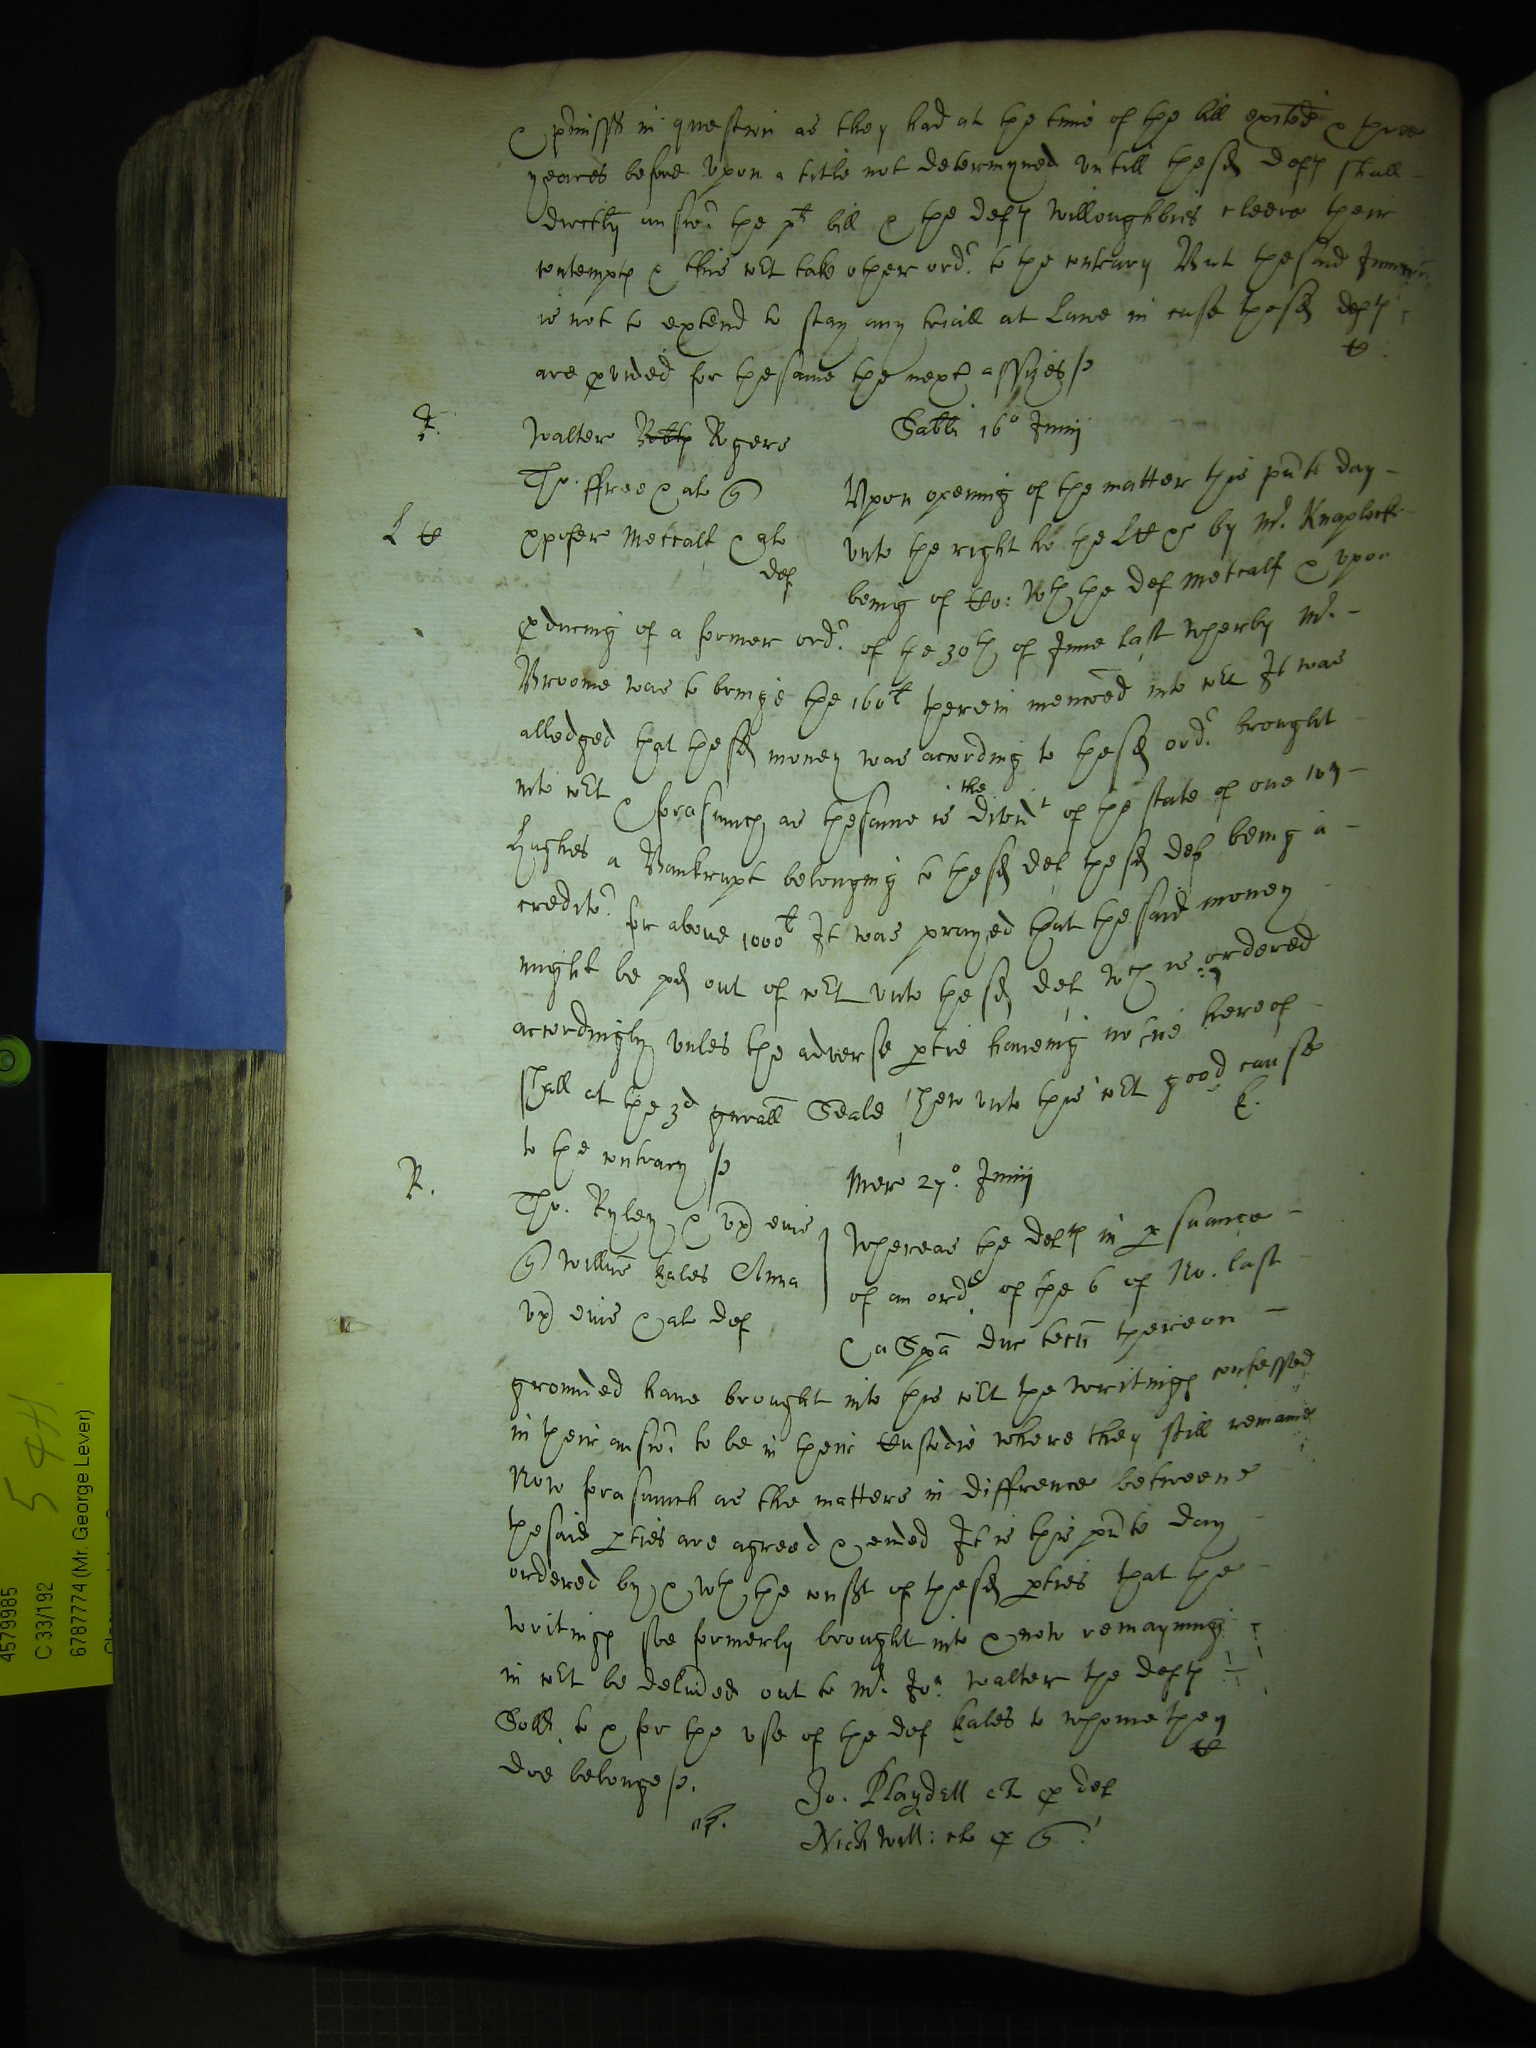 & p̃miss̃ in question as they had at the time of the bill exited & three
yeares before upon a title not determyned untill the sd deft shall
directly answr the plt bill & the deft Willoughbies cleere their
contempt & this Cot take other ordr to the contrary But the said Iniunccon
is not to extend to stay any triall at Lawe in case the sd deft
are pvided for the same the next assizes
Sabbi 16° Junij
R.
Walter Rogers
Tho. ffree & als
Xpofer Metcalf & als
def
L C
Upon opening of the matter this pñte day
unto the right ho the L C &c by Mr. Knaplocke
being of Co: wth the def Metcalf & upon
pducing of a former ordr of the 30th of June last wherby Mr.
Broome was to bringe the 160l therein menc̃oed into Cot It was
alledged that the sd money was according to the sd ordr brought
into Cot & forasmuch as the same is the divid t of the state of one
Hughes a Bankrupt belonging to the sd def the sd def being a
creditor for above 1000l It was prayed that the said money
might be pd out of Cot unto the sd def wch is ordered
accordingly unles the adverse ptie haveing notice hereof
shall at the 3d gñrall Seale shew unto this Cot good cause
to the contrary
Mer 27° Junij
R.
Tho. Ryley & ux eius
Willm̃ Eales Anna
ux eius & als def
Whereas the deft in psuance
of an ordr of the 6 of No. last
& a Spa duc tecu thereon
grounded have brought into this Cot the writings confessed
in their answr to be in their Custodie where they still remaine
Now forasmuch as the matters in difference betweene
the said pties are agreed & ended It is this pñte day
ordered by & wth the const of the sd pties that the
writings soe formerly brought into & now remayning
in Cot be delivded out to Mr. Jon. Walter the defts
Sollr. to & for the use of the def Eales to whome they
doe belonge
Jo. Playdell Cl p def
Nich Will: cl p
4579985
C 33/192
6787774 (Mr. George Lever)